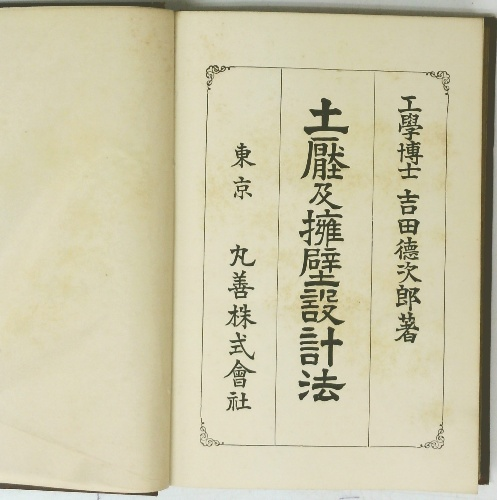 工學博士 吉田德次郎著
土壓及擁壁設計法
東京 丸善株式會社